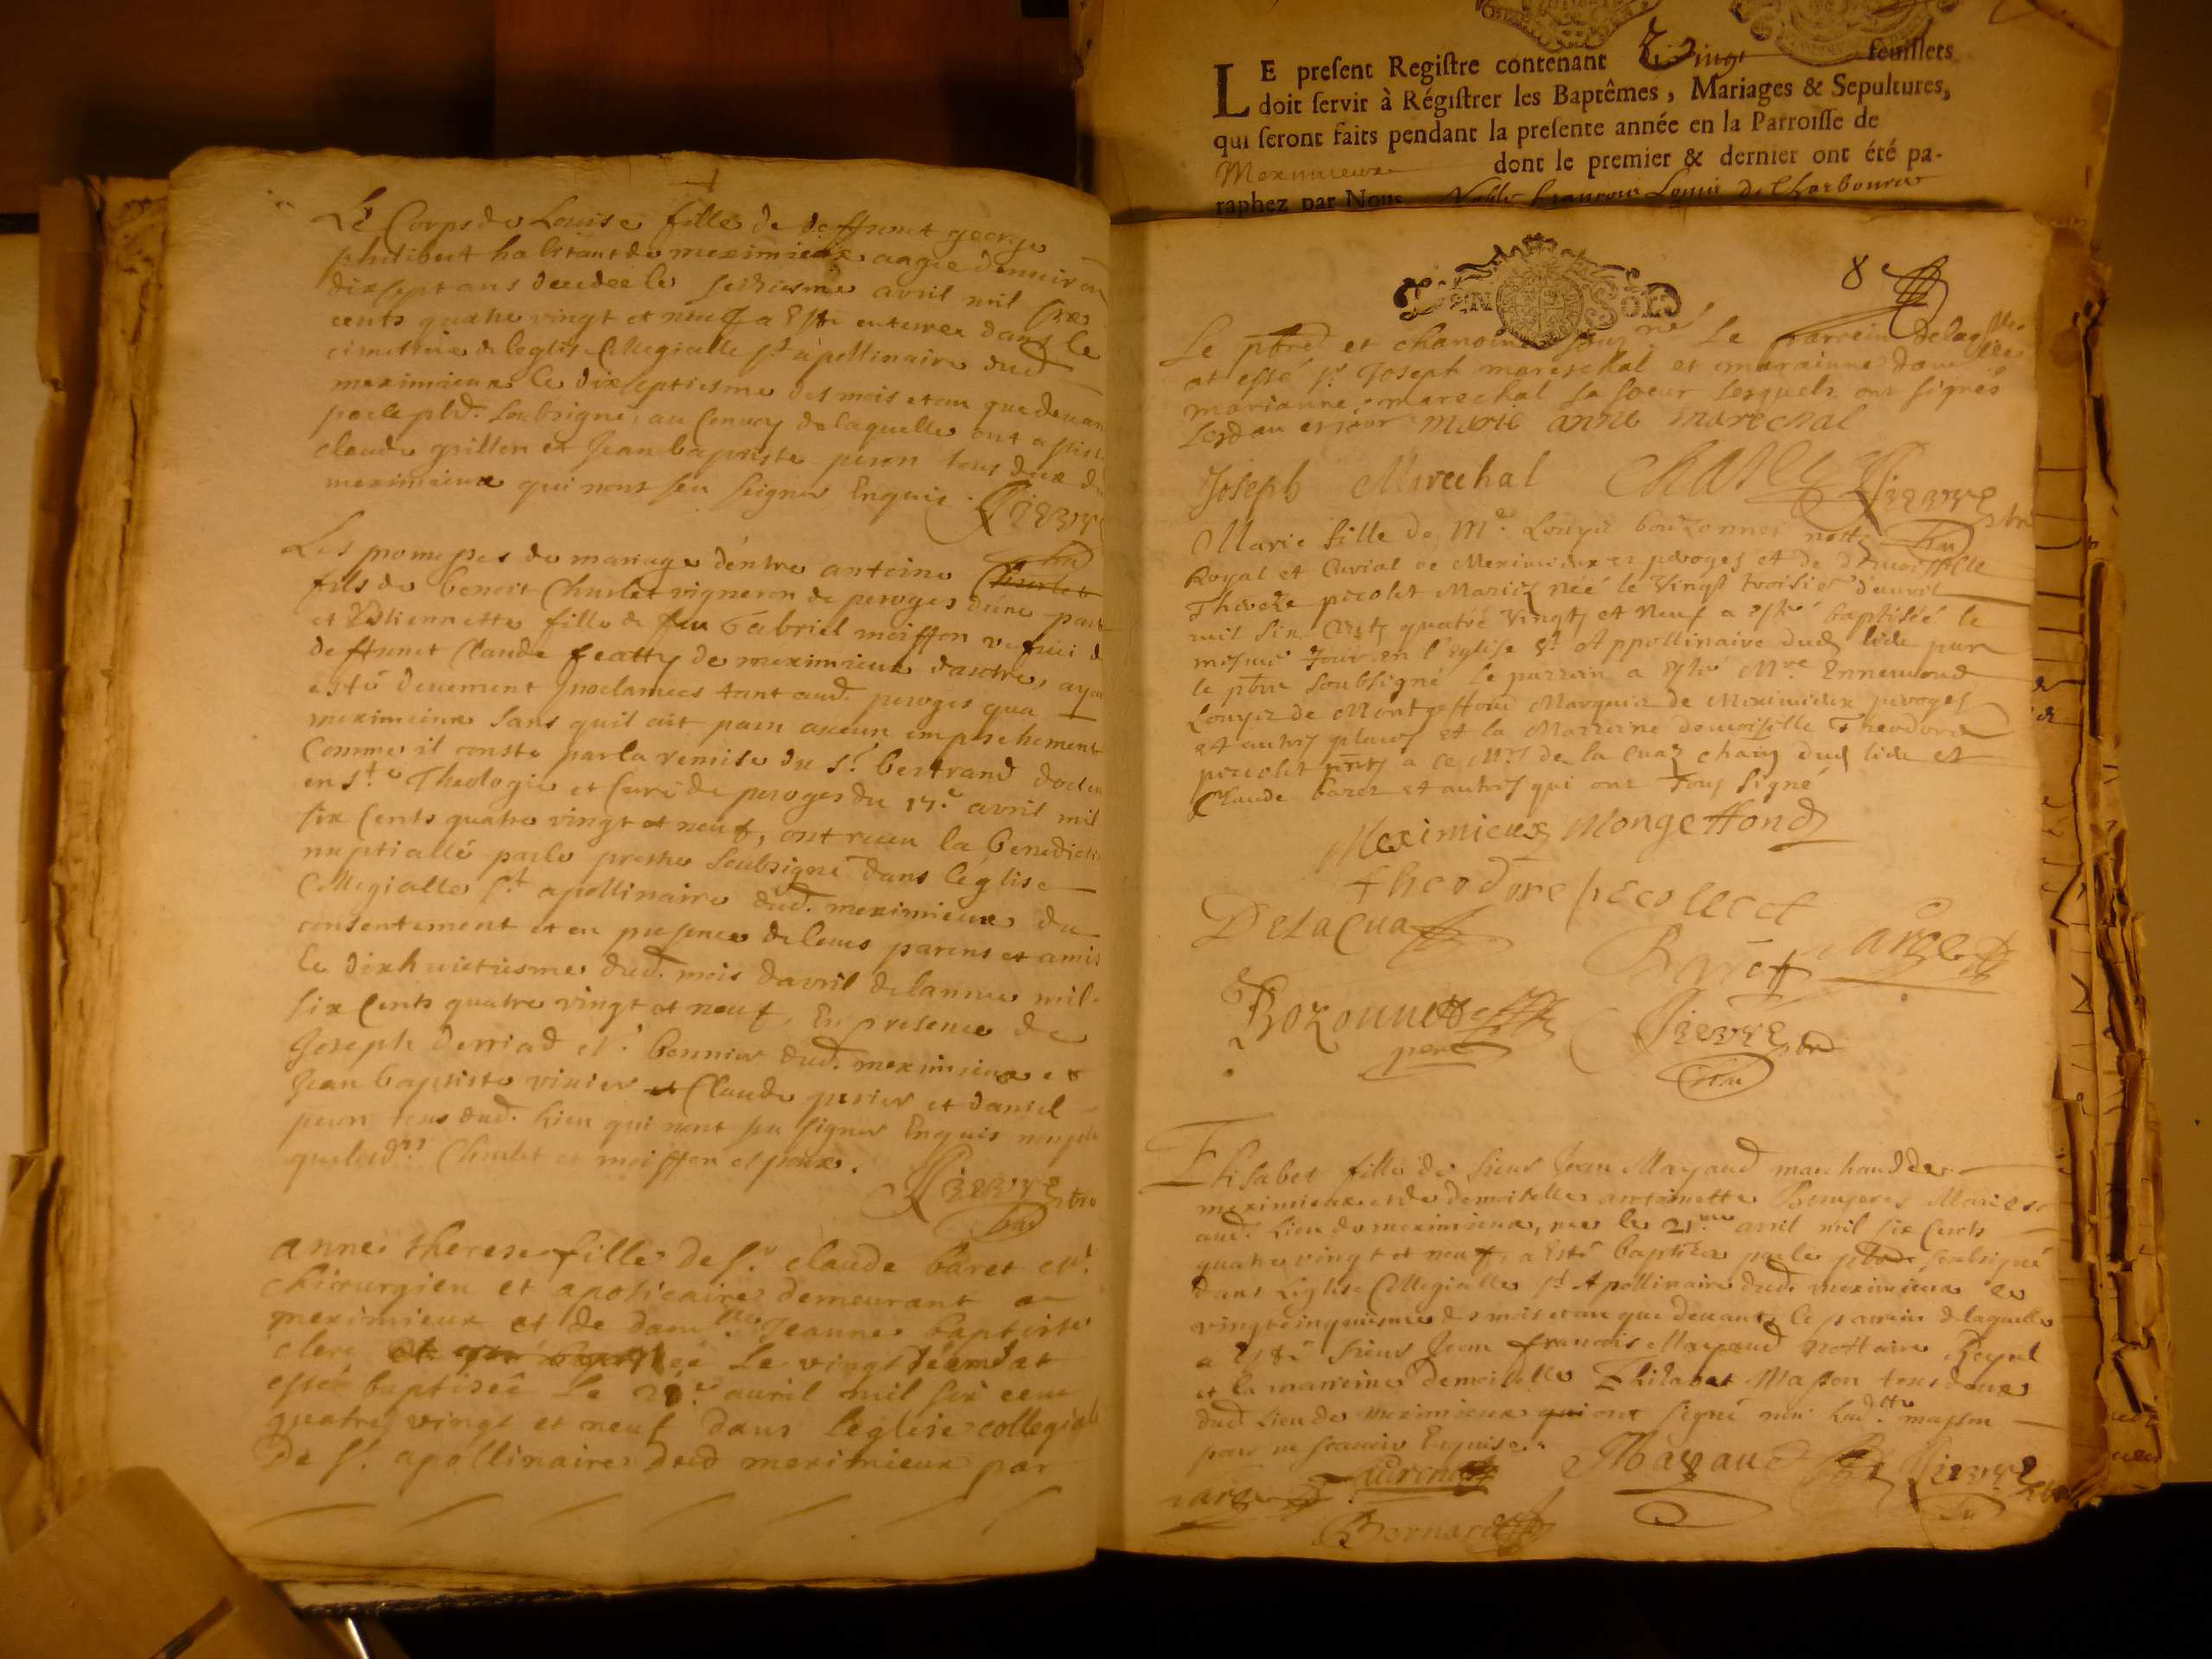 Le Corps de Louise fille de deffunct george
philibert habitant de meximieux aagée denuiron
dixsept ans decedée le seiziesme avril mil six
cents quatre vingt et neuf a Esté enterree dans le
cimettiere de leglise Collegialle St apollinaire dud
meximieux le dixseptiesme des mois et an que deuan
par le pbre soubsigné, au Convoy de laquelle ont assisté
claude grillon et Jean baptiste peron tous deux de
meximieux qui nont sçu signer Enquis
Les promesses de mariage d'entre antoine Charlet
fils de benoit Charlet vigneron de peroges d'une part
et Estiennette fille de feu Gabriel moiffon vefue de
deffunct Claude featty de meximieux dautre, ayant
esté deuement proclamees tant aud. peroges qua
meximieux sans quil ait paru aucun empeschement
Comme il conste par la remise du Sr bertrand docteur
en Ste Theologie et Curé de peroges du 17e avril mil
six Cents quatre vingt et neuf, ont receu la benedicti
nuptiallé par le prestre soubsigné dans léglise
Collegialle St apollinaire dud. meximieux du
consentement et en presence de leurs parens et amis
le dixhuictiesme dud. mois davril de lannee mil
six Cents quatre vingt et neuf, En presence de
Joseph Derriad et bonnier dud. meximieux et
Jean baptiste vixier et Claude perier et daniel
peron tous dud. lieu qui nont sçu signer Enquis non plus
que lesd. Charlet et moiffon espoux.
anne therese fille de Sr claude baret
chirurgien et apoticaire demeurant a
meximieux et de damlle Jeanne baptiste
clerc née le vingt et
esté baptisée le 28e auril mil six cent
quatre vingt et neuf dans l'eglise collegiale
de St apollinaire dud meximieux par
LE present Registre contenant Vingt feuillets
doit servir à Régistrer les Baptêmes, Mariages & Sepultures,
qui seront faits pendant la presente année en la Parroisse de
Meximieux dont le premier & dernier ont été pa-
raphez par Nous Noble francois Louis de Charbonnier
8
Le pbre et chanoine soussigné Le parrein de laquelle
at essé Sr Joseph mareschal et maraine damlle
marianne marechal sa soeur lesquels ont signés
marie anne marechal
Joseph Marechal
Marie fille de Me. Louys bouzonnet nottre
Royal et Curial de Meximieux et peroges et de demoiselle
Thereze picolet Mariez néé le Vingt troisie d'auril
mil six Cents quatre Vingts et Neuf a esté baptiséé le
mesme Jour en l'Eglise St Appollinaire dud lieu par
le pbre soubsigné le parrain a esté Mre Ennemond
Louys de Montgeffond Marquis de Meximieux peroges
et autres places et la Marraine demoiselle Theodore
piccolet pnts a ce Mrs de la cua chang dud lieu et
Claude baret et autres qui ont Tous signé
Meximieux Mongeffond
theodore piccollet
Delacua
Baret
Bozonnet
pere
Elisabet fille de sieur Jean Mayaud marchand de
meximieux et de demoiselle antoinette Bruyeres Mariés
aud. Lieu de meximieux, nee le 21me auril mil six Cents
quatre vingt et neuf, a Esté baptizee par le pbre soubsigné
dans Leglise Collegialle St Apollinaire dud. meximieux le
vingtcinquiesme des mois et an que deuant, le parrain de laquelle
a Esté sieur Jean francois Mayaud nottaire Royal
et la marreine demoiselle Elisabet Masson tous deux
dud Lieu de Meximieux qui ont signé non lad.tte masson
pour ne scauoir Enquise.
Mayaud
Bernard